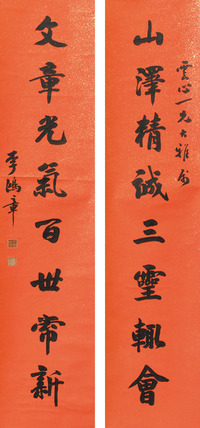 雲心一兄大雅属
山澤精誠三靈輒會
文章光氣百世常新
李鴻章